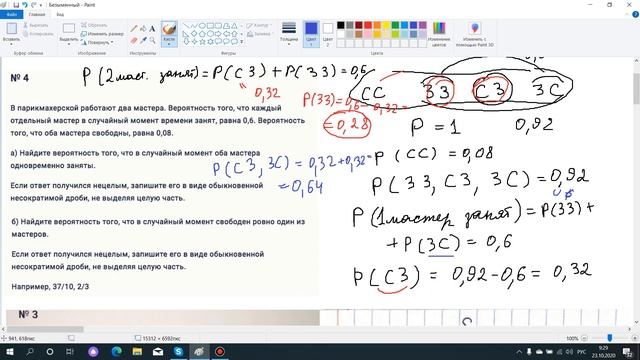 Безымянный - Paint
Файл Главная Вид
Вставить
Вырезать
Копировать
Выделить
Обрезать
Изменить размер
Повернуть
Кисти
Контур
Заливка
Толщина
Цвет 1
Цвет 2
Изменение цветов
Изменить с помощью Paint 3D
Буфер обмена Изображение Инструменты Фигуры Цвета
№ 4
P(2 маст. занят) = P(СЗ) + P(ЗЗ) = 0,6
0,32
СС ЗЗ СЗ ЗС
P(ЗЗ) = 0,6 - 0,32 =
= 0,28
P = 1 0,92
В парикмахерской работают два мастера. Вероятность того, что каждый
отдельный мастер в случайный момент времени занят, равна 0,6. Вероятность
того, что оба мастера свободны, равна 0,08.
а) Найдите вероятность того, что в случайный момент оба мастера
одновременно заняты.
P(СЗ, ЗС) = 0,32 + 0,32 =
= 0,64
Если ответ получился нецелым, запишите его в виде обыкновенной
несократимой дроби, не выделяя целую часть.
б) Найдите вероятность того, что в случайный момент свободен ровно один из
мастеров.
Если ответ получился нецелым, запишите его в виде обыкновенной
несократимой дроби, не выделяя целую часть.
Например, 37/10, 2/3
P(СС) = 0,08
P(ЗЗ, СЗ, ЗС) = 0,92
P(1 мастер занят) = P(ЗЗ) +
+ P(ЗС) = 0,6
P(СЗ) = 0,92 - 0,6 = 0,32
№ 3
941, 618пкс
15312 × 6592пкс
100%
РУС
9:29
23.10.2020